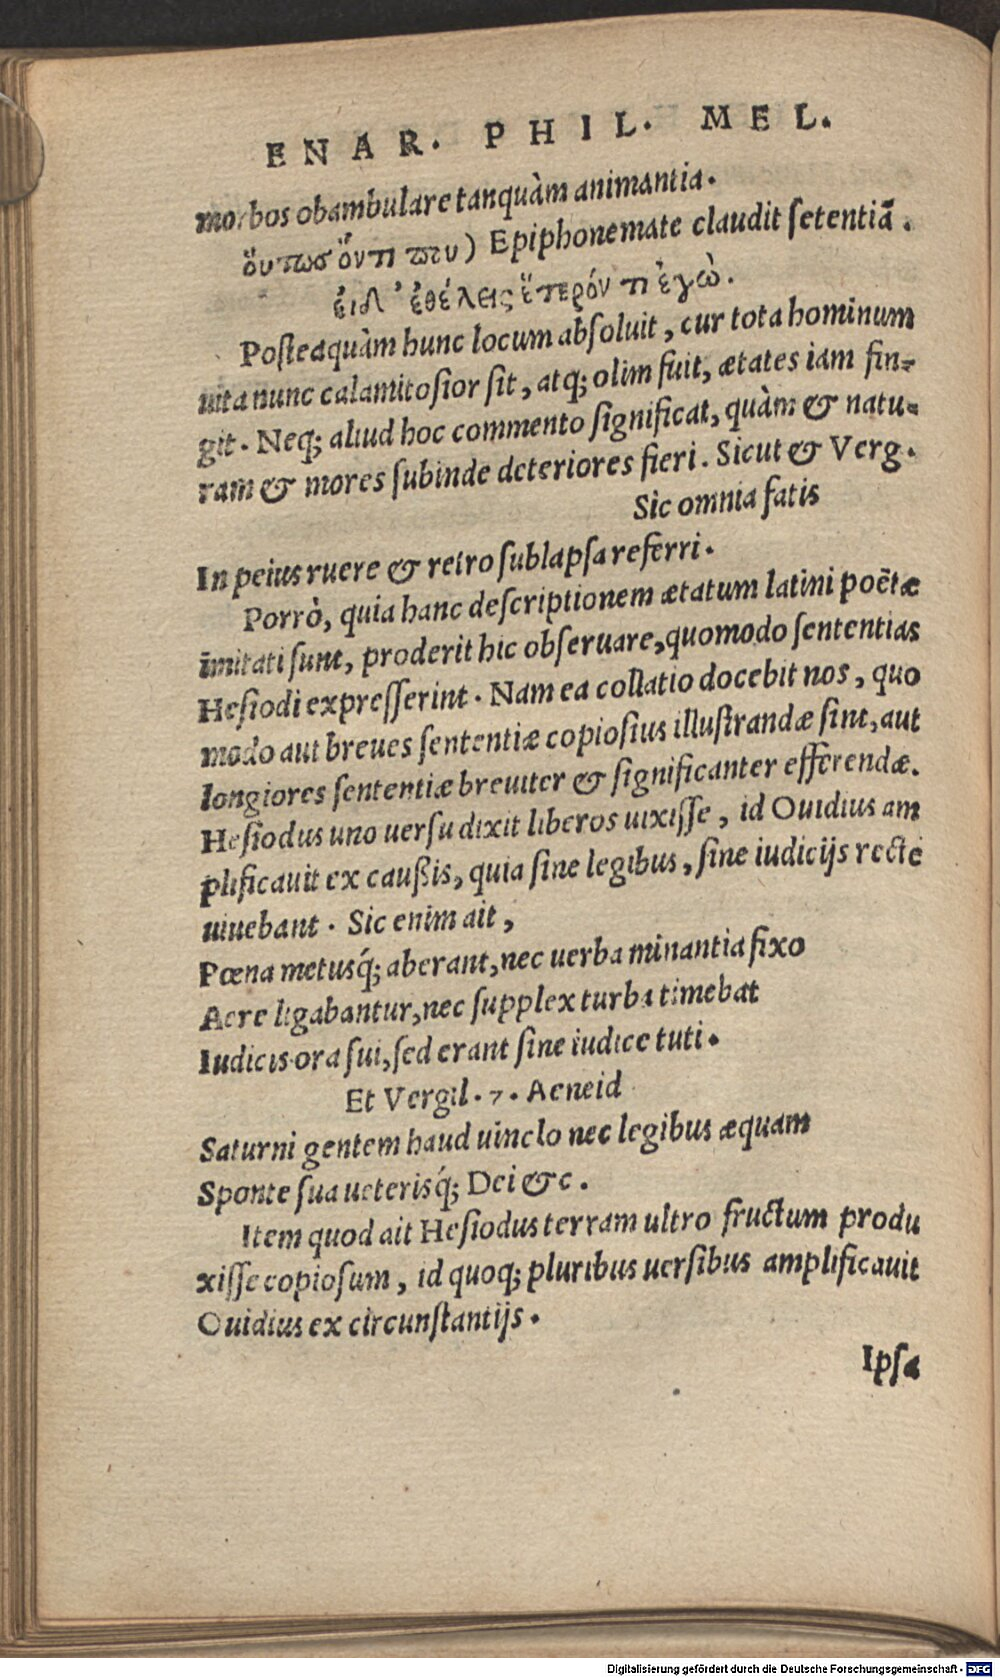 ENAR. PHIL. MEL.
morbos obambulare tanquàm animantia.
ὅυτωσ ὄντι που) Epiphonemate claudit setentiā.
ἐιδ᾽ ἐθέλεις ἕτερόν τι ἐγὼ.
Posteaquàm hunc locum absoluit, cur tota hominum
uita nunc calamitosior sit, atq; olim fuit, ætates iam fin-
git. Neq; aliud hoc commento significat, quàm & natu-
ram & mores subinde deteriores fieri. Sicut & Verg.
Sic omnia fatis
In peius ruere & retro sublapsa referri.
Porrò, quia hanc descriptionem ætatum latini poëtæ
imitati sunt, proderit hic obseruare, quomodo sententias
Hesiodi expresserint. Nam ea collatio docebit nos, quo
modo aut breues sententiæ copiosius illustrandæ sint, aut
longiores sententiæ breuiter & significanter efferendæ.
Hesiodus uno uersu dixit liberos uixisse, id Ouidius am
plificauit ex caußis, quia sine legibus, sine iudicijs recte
uiuebant. Sic enim ait,
Pœna metusq́; aberant, nec uerba minantia fixo
Aere ligabantur, nec supplex turba timebat
Iudicis ora sui, sed erant sine iudice tuti.
Et Vergil. 7. Aeneid
Saturni gentem haud uinclo nec legibus æquam
Sponte sua ueterisq́; Dei &c.
Item quod ait Hesiodus terram ultro fructum produ
xisse copiosum, id quoq; pluribus uersibus amplificauit
Ouidius ex circunstantijs.
Ipsa
Digitalisierung gefördert durch die Deutsche Forschungsgemeinschaft - DFG